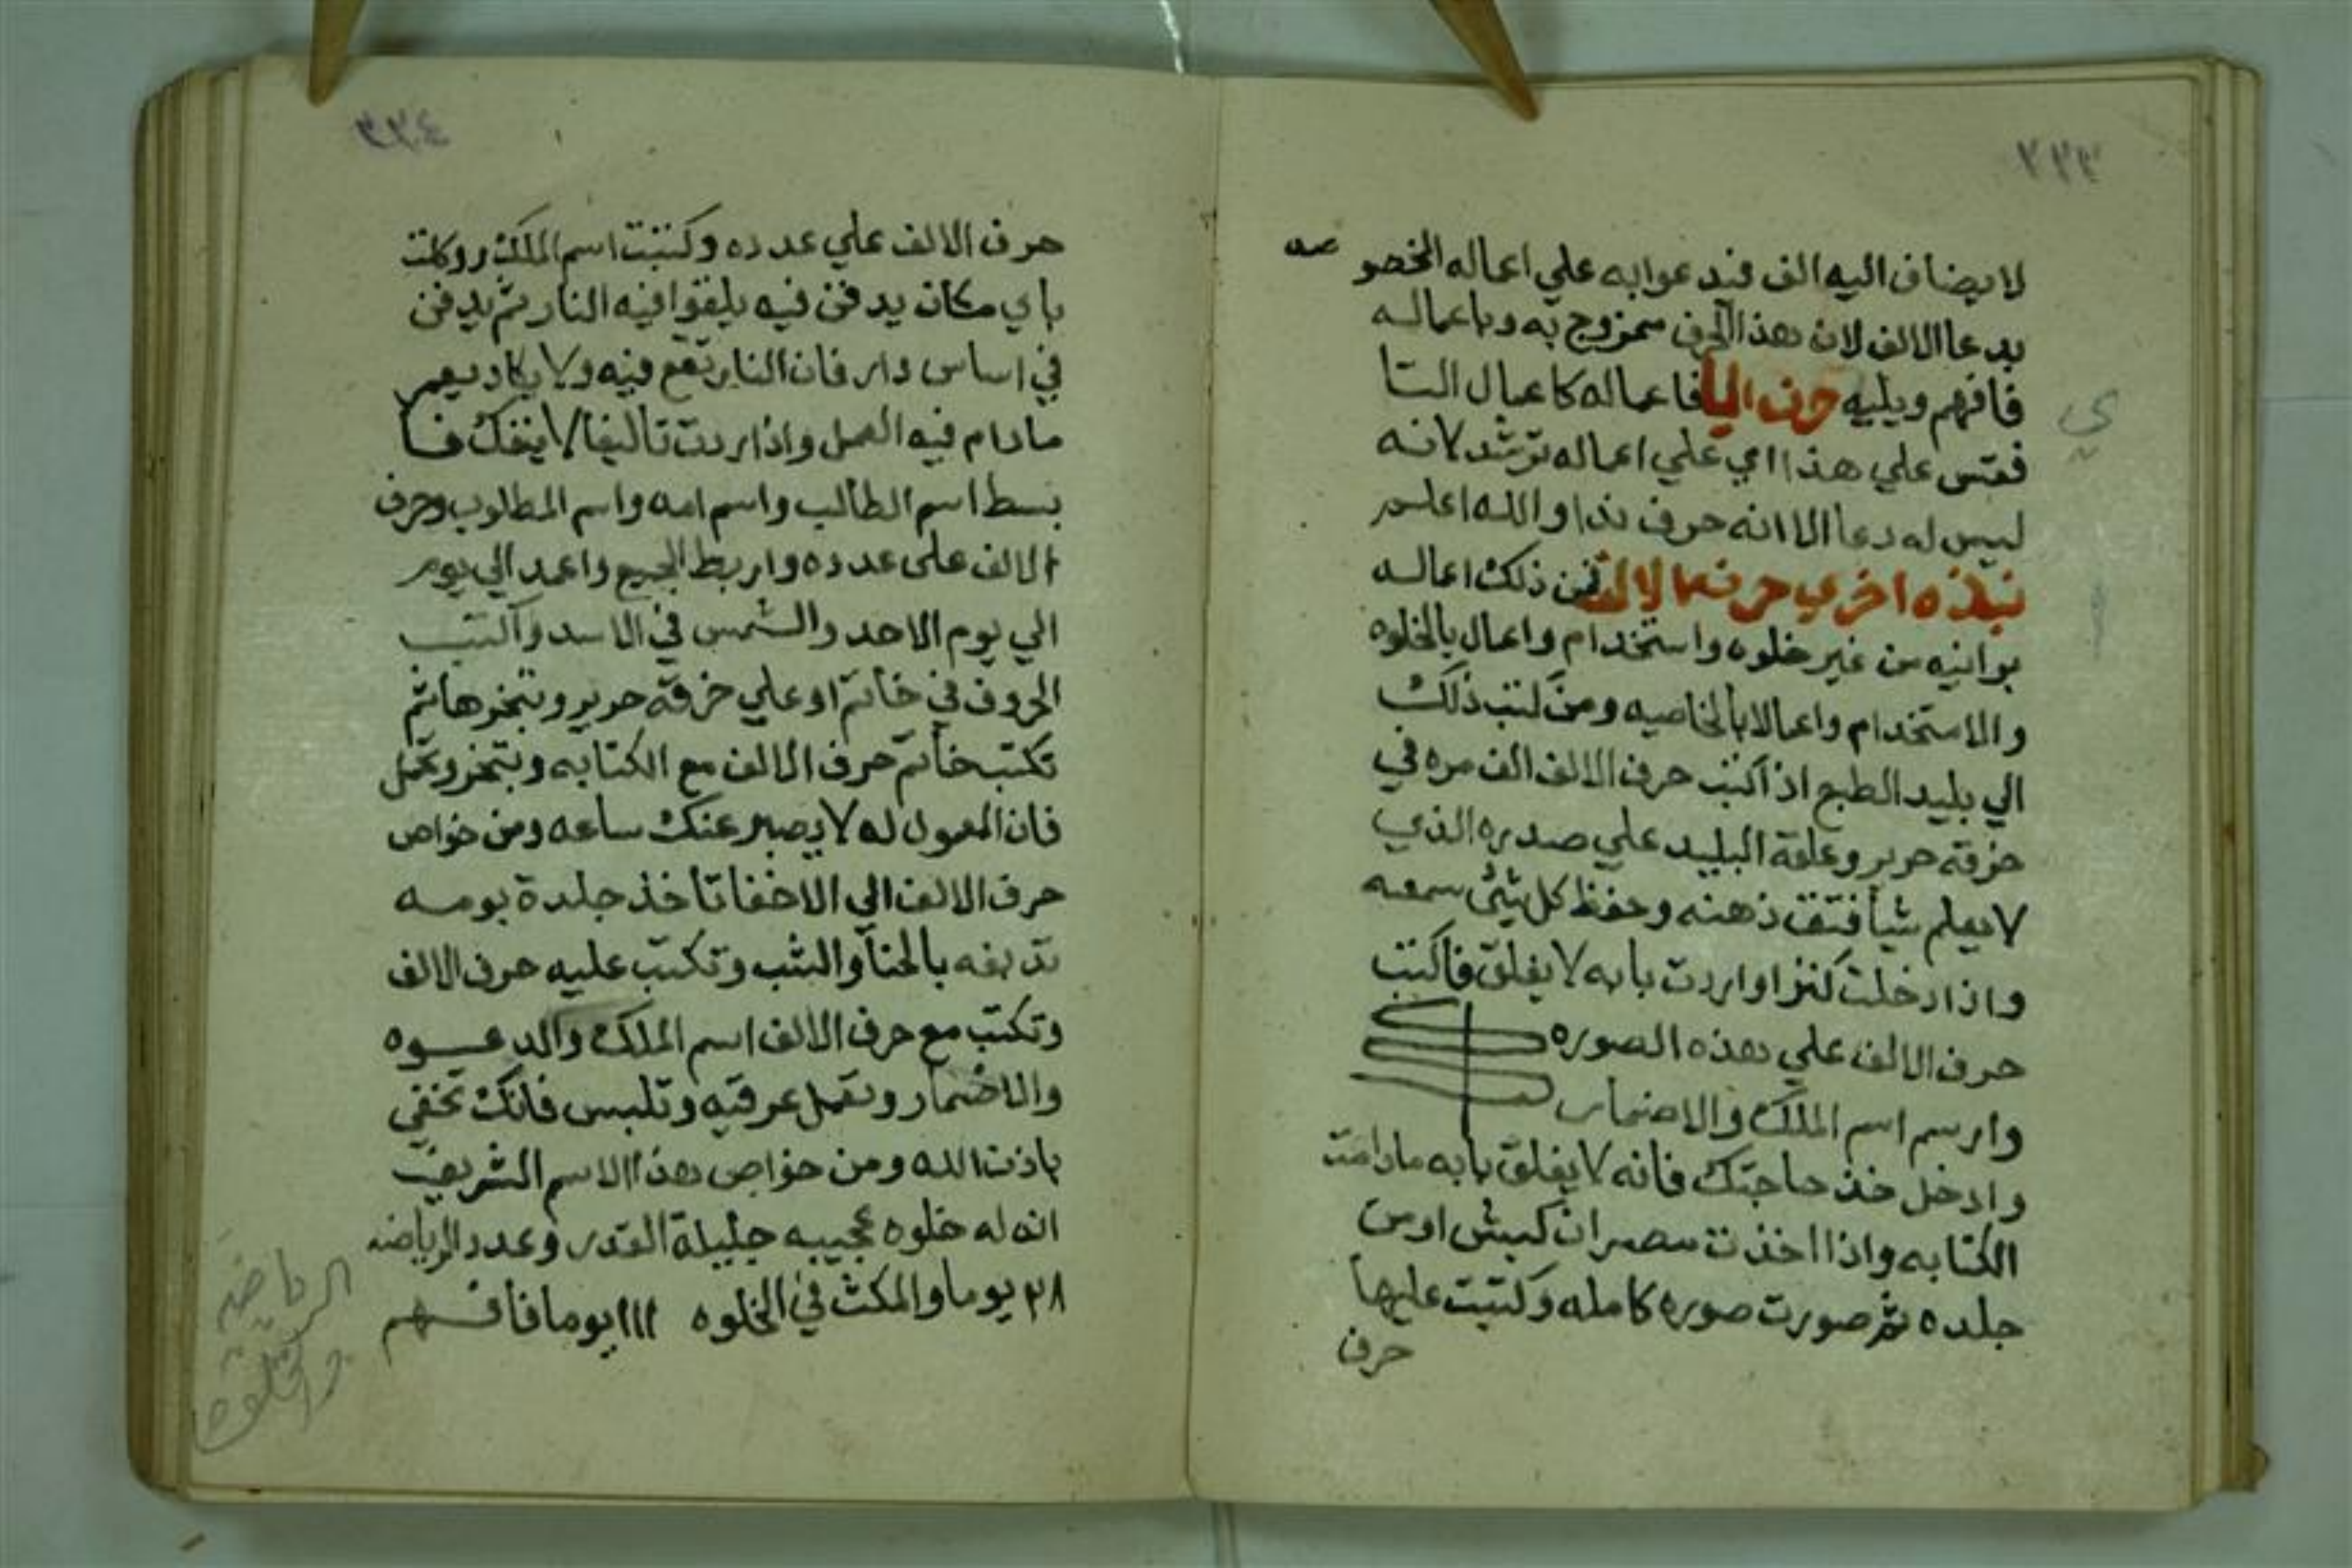 ٢٣٣
لا يضاف اليه الف فندعوا به علي اعماله المخصو صه
بدعا الالف لان هذا الحرف ممزوج به وباعماله
فافهم ويليه حرف اليا فاعماله كاعمال التا
ي
فقس علي هذا اي علي اعماله ترشد لانه
ليس له دعا الا انه حرف ندا والله اعلم
نبذه اخري حرف الالف فمن ذلك اعماله
برانيه من غير خلوه واستخدام واعمال بالخلوه
والاستخدام واعمالا بالخاصيه ومن كتب ذلك
الي بليد الطبع اذا كتب حرف الالف الف مره في
خرقة حرير وعلقة البليد علي صدره الذي
لا يعلم شيأ فتق ذهنه وحفظ كل شئ سمعه
واذا دخلت كنزا واردت بابه لا يغلق فاكتب
حرف الالف علي هذه الصوره
وارسم اسم الملك والاضمار
وادخل خذ حاجتك فانه لا يغلق بابه مادامت
الكتابه واذا اخذت مصران كبش او من
جلده ثم صورت صوره كامله وكتبت عليها
حرف
٢٣٤
حرف الالف علي عدده وكتبت اسم الملك ووكلت
باي مكان يدفن فيه يلقوا فيه النار ثم يدفن
في اساس دار فان النار تقع فيه ولا يكاد يعمر
مادام فيه العمل واذا اردت تاليفا لا ينفك فا
بسط اسم الطالب واسم امه واسم المطلوب وحرف
الالف علي عدده واربط الجميع واعمد الي يوم
الي يوم الاحد والشمس في الاسد واكتب
الحروف في خاتم او علي خرقة حرير وتبخرها ثم
تكتب خاتم حرف الالف مع الكتابه وتبخر وتحمل
فان المعمول له لا يصبر عنك ساعه ومن خواص
حرف الالف الي الاخفا تأخذ جلدة بومه
تدبغه بالحنا والشب وتكتب عليه حرف الالف
وتكتب مع حرف الالف اسم الملك والدعوه
والاضمار وتعمل عرقيه وتلبس فانك تخفي
باذن الله ومن خواص هذا الاسم الشريف
انه له خلوه عجيبه جليلة القدر وعدد الرياضه
٢٨ يوما والمكث في الخلوه ١١١ يوما فافهم
الرياضة
والخلوه